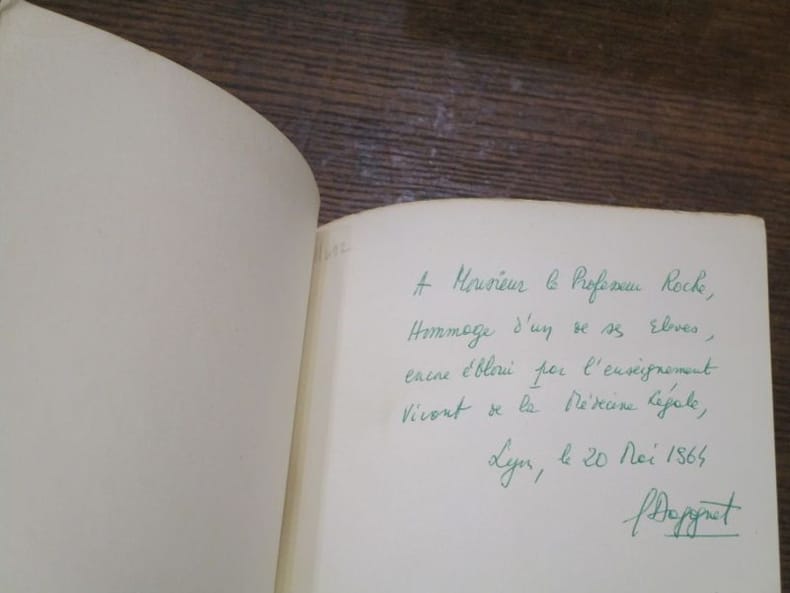 A Monsieur le Professeur Roche,
Hommage d'un de ses élèves,
encore ébloui par l'enseignement
Vivant de la Médecine Légale,
Lyon, le 20 Mai 1964
f Dagognet